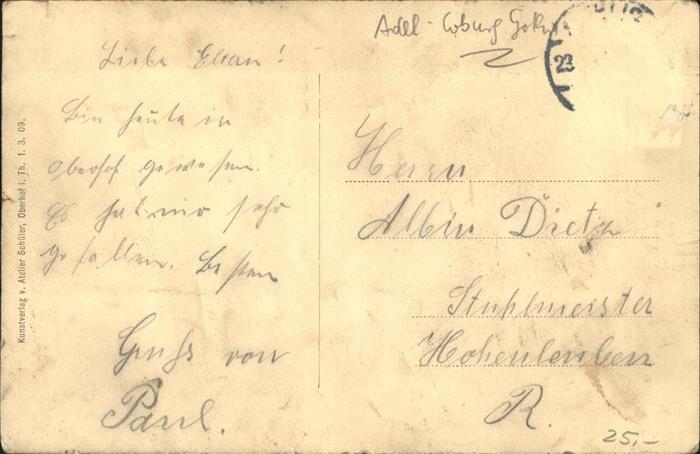 Adel - Coburg Gotha
23
Liebe Eltern!
Bin heute in
Oberhof gewesen.
Es hat mir sehr
gefallen. Besten
Gruß von
Paul.
Herrn
Albin Dietz
Stuhlmeister
Hohenleuben
R.
25,-
Kunstverlag v. Atelier Schüler, Oberhof i. Th. 1. 3. 09.